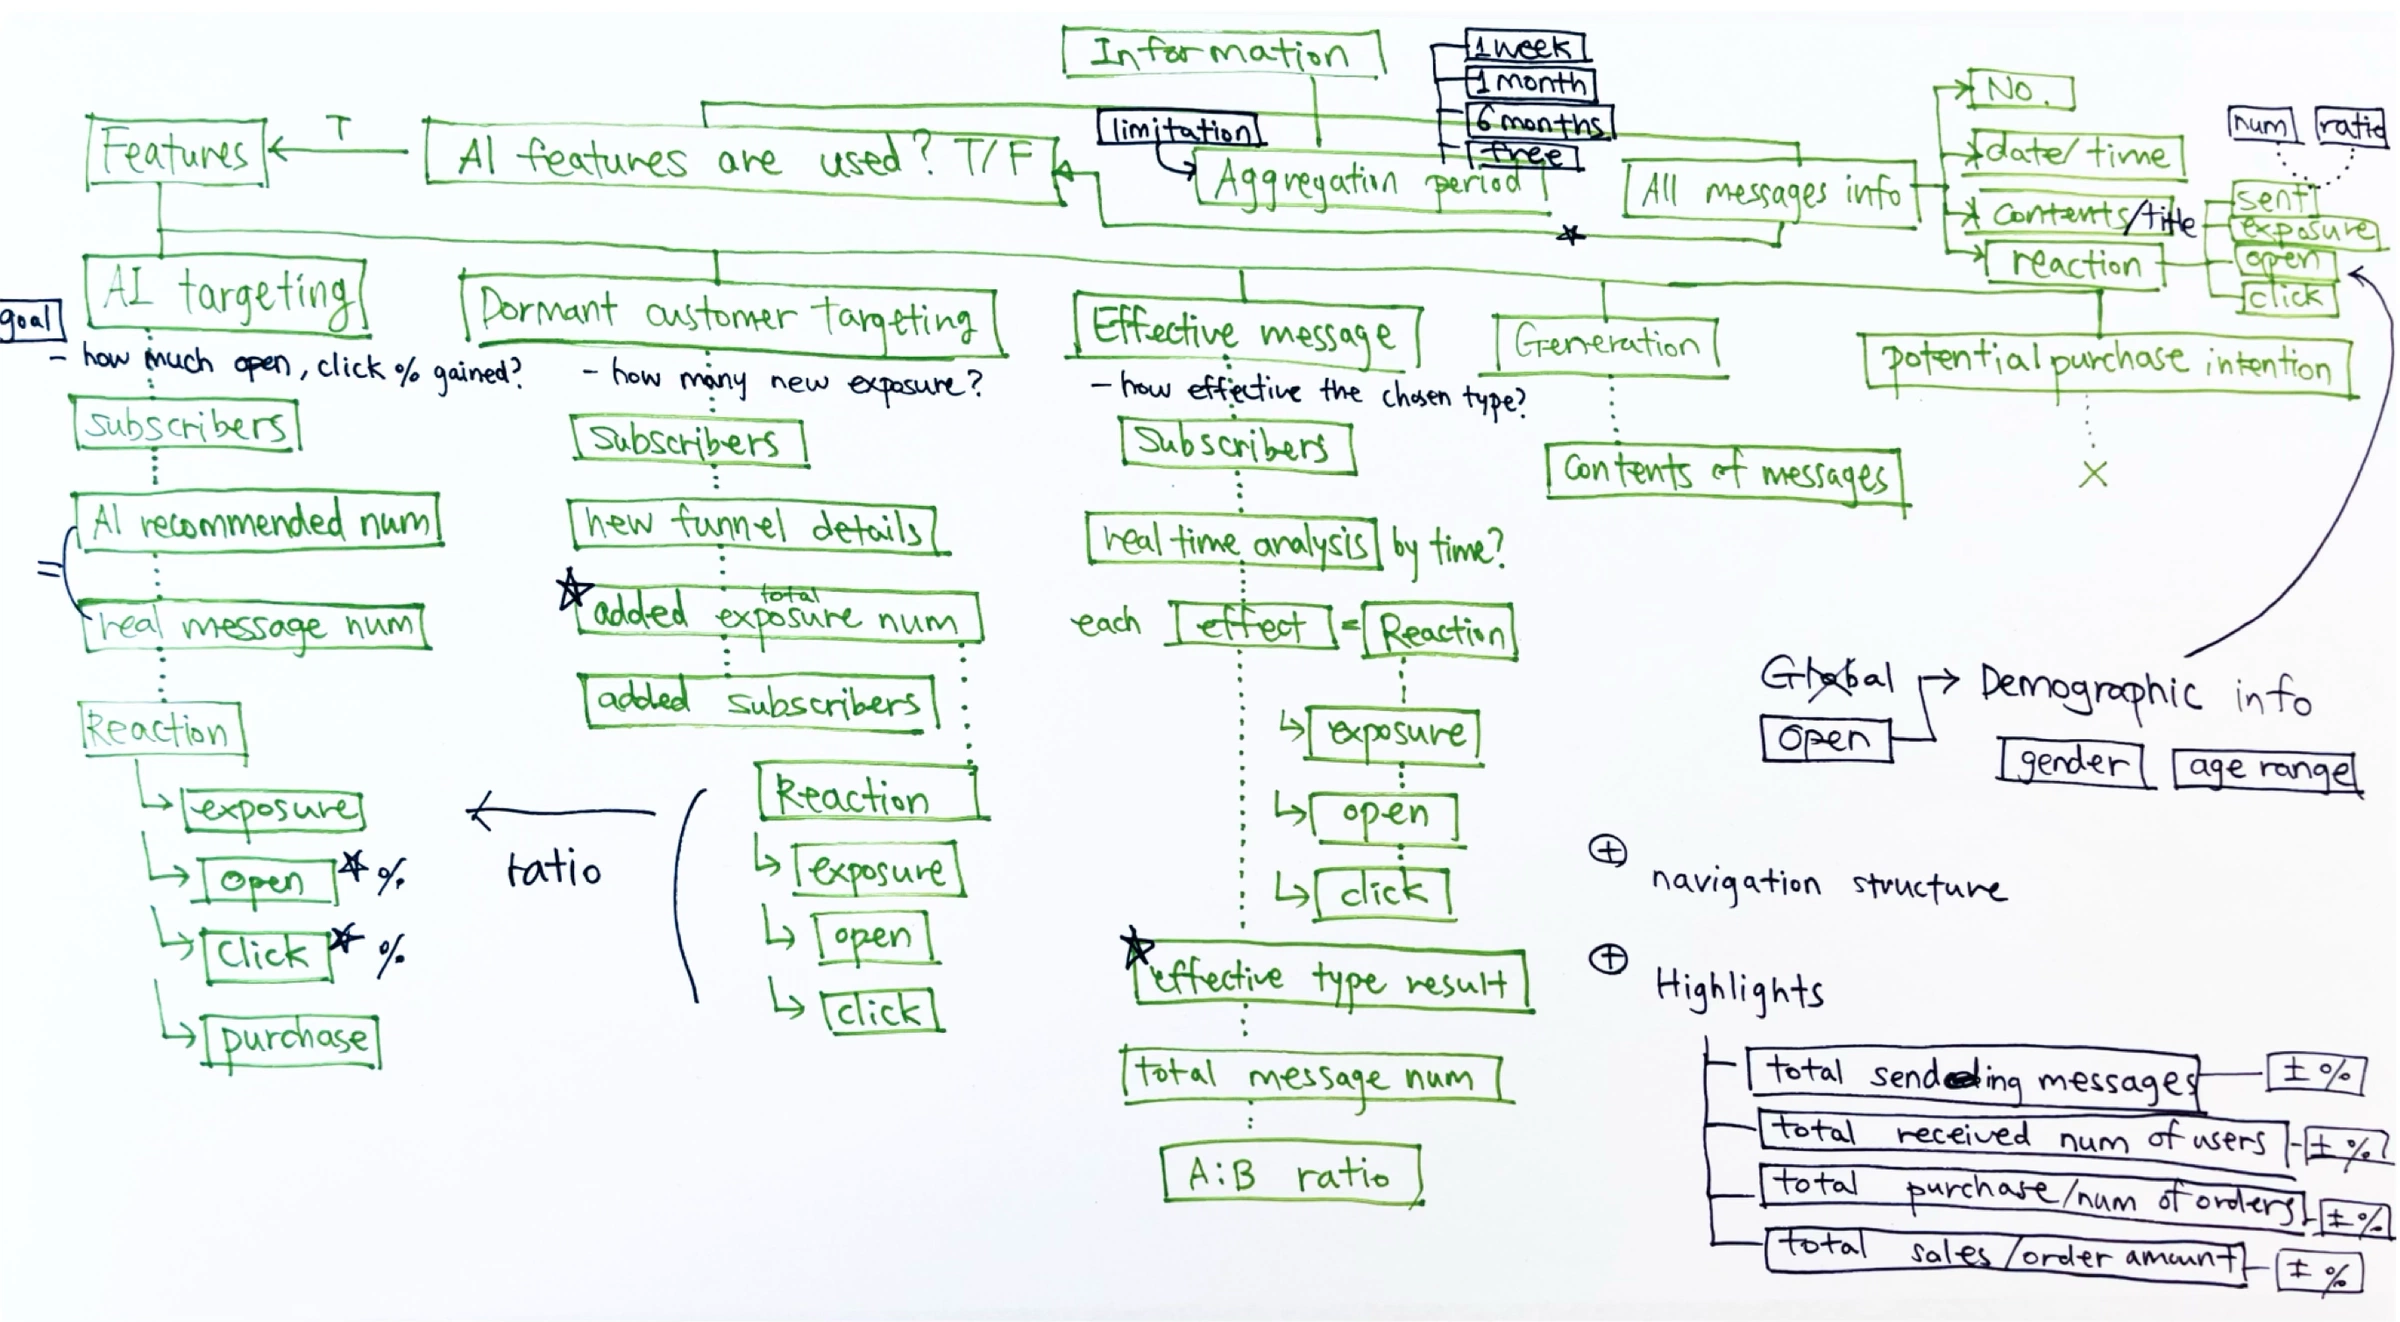 Information
1 week
1 month
6 months
free
limitation
Aggregation period
Features
T
AI features are used? T/F
All messages info
No.
date/time
contents/title
reaction
num
ratio
sent
exposure
open
click
goal
AI targeting
- how much open, click % gained?
subscribers
AI recommended num
=
real message num
Reaction
exposure
open %
Click %
purchase
Dormant customer targeting
- how many new exposure?
Subscribers
new funnel details
total
added exposure num
added subscribers
Reaction
exposure
open
click
ratio
Effective message
- how effective the chosen type?
Subscribers
real time analysis by time?
each effect = Reaction
exposure
open
click
effective type result
total message num
A:B ratio
Generation
contents of messages
potential purchase intention
X
Global
Open
Demographic info
gender
age range
+ navigation structure
+ Highlights
total sending messages ± %
total received num of users ± %?
total purchase/num of orders ± %
total sales/order amount ± %